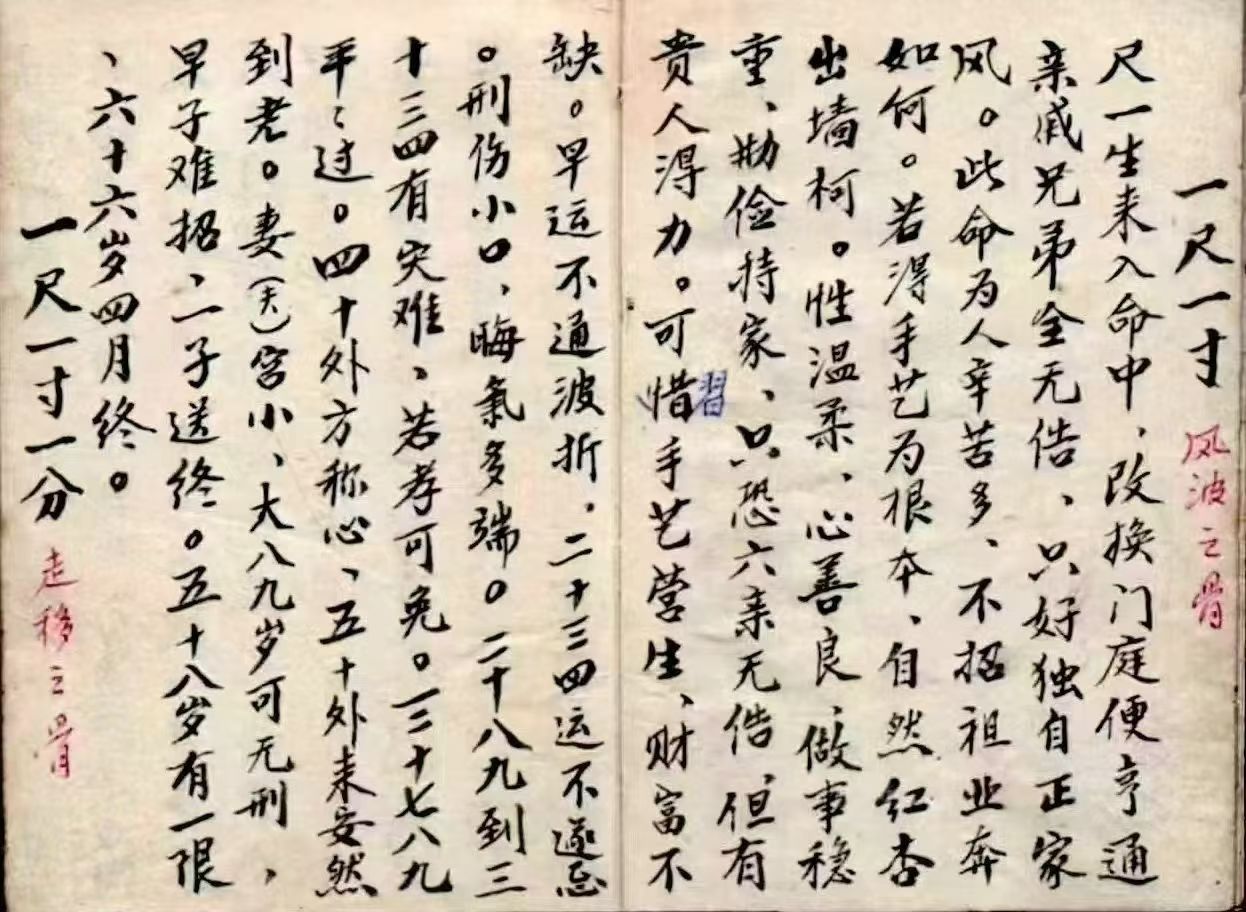 一尺一寸 风波之骨
尺一生来入命中、改换门庭便亨通
亲戚兄弟全无俈、只好独自正家
风。此命为人辛苦多、不招祖业奔
如何。若得手艺为根本、自然红杏
出墙柯。性温柔、心善良、做事稳
重、勤俭持家、只恐六亲无俈、但有
贵人得力。可惜習手艺营生、财富不
缺。早运不通波折、二十三四运不遂忌
。刑伤小口、晦氣多端。二十八九到三
十三四有灾难、若孝可免。三十七八九
平々过。四十外方称心、五十外来安然
到老。妻(夫)宫小、大八九岁可无刑、
早子难招、二子送终。五十八岁有一限
、六十六岁四月终。
一尺一寸一分 走移之骨